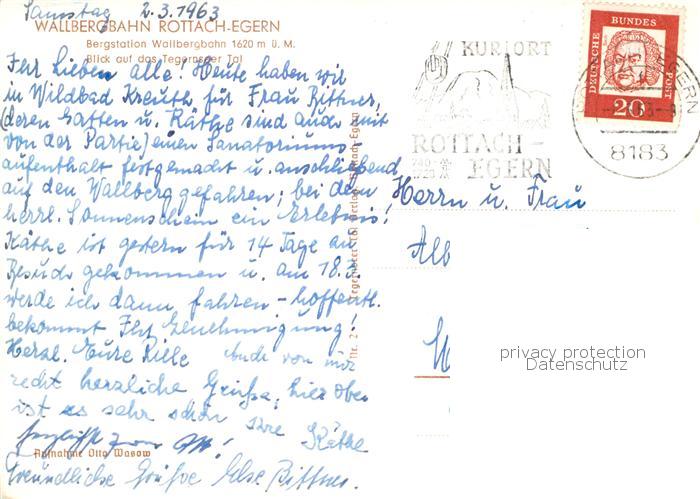 Samstag 2.3.1963
WALLBERGBAHN ROTTACH-EGERN
Bergstation Wallbergbahn 1620 m ü. M.
Blick auf das Tegernseer Tal
Ihr lieben alle! Heute haben wir
in Wildbad Kreuth für Frau Bittner,
(deren Gatten u. Käthe sind auch mit
von der Partie) einen Sanatoriums-
aufenthalt festgemacht u. anschließend
auf den Wallberg gefahren; bei dem
herrl. Sonnenschein ein Erlebnis!
Käthe ist gestern für 14 Tage an
Besuch gekommen u. am 18.3.
werde ich dann fahren - hoffentl.
bekommt Ihr Genehmigung!
Herzl. Eure Rille Auch von mir
recht herzliche Grüße, hier oben
ist es sehr schön Ihre Käthe
Aufnahme Otto Wasow
Freundliche Grüße Else Bittner.
KURORT
ROTTACH-
EGERN
740-
1720
DEUTSCHE BUNDESPOST
20
EGERN
8183
Herrn u. Frau
Alb
privacy protection
Datenschutz